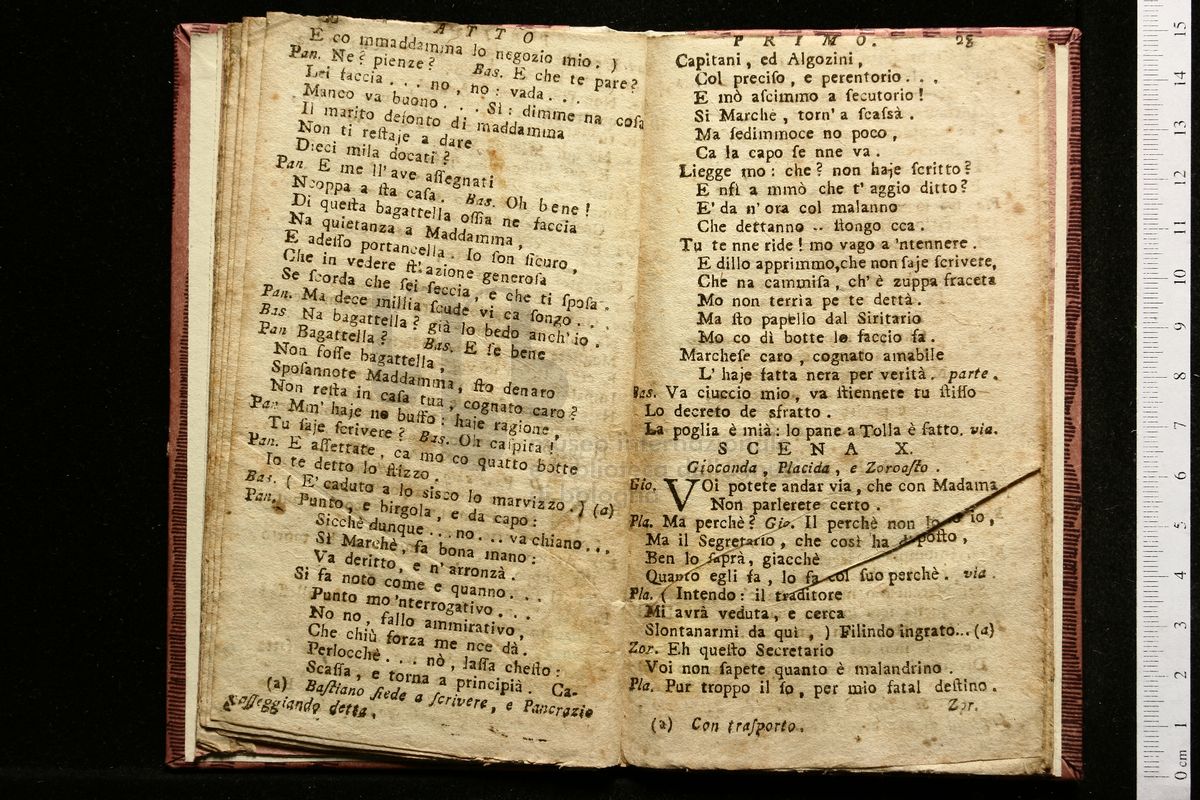 ATTO
E co mmaddamma lo negozio mio. )
Pan. Ne? pienze? Bas. E che te pare?
Lei faccia... no, no: vada...
Manco va buono... Sì: dimme na cosa
Il marito defonto di maddamma
Non ti reſtaje a dare
Dieci mila docati?
Pan. E me ll'ave aſſegnati
Ncoppa a ſta caſa. Bas. Oh bene!
Di queſta bagattella oſſia ne faccia
Na quietanza a Maddamma,
E adeſſo portancella. Io ſon ſicuro,
Che in vedere ſt'azione generoſa
Se ſcorda che ſei ſeccia, e che ti ſpoſa.
Pan. Ma dece millia ſcude vi ca ſongo...
Bas Na bagattella? già lo bedo anch'io.
Pan Bagattella? Bas. E ſe bene
Non foſſe bagattella,
Spoſannote Maddamma, ſto denaro
Non reſta in caſa tua, cognato caro?
Pan Mm' haje ne buſſo: haje ragione,
Tu ſaje ſcrivere? Bas. Oh caſpita!
Pan. E aſſettate, ca mo co quatto botte
Io te detto lo ſtizzo.
Bas. ( E' caduto a lo sisco lo marvizzo. ) (a)
Pan. Punto, e birgola, e da capo:
Sicchè dunque... no... va chiano...
Sì Marchè, fa bona mano:
Va deritto, e n'arronzà.
Si fa noto come e quanno...
Punto mo 'nterrogativo...
No no, fallo ammirativo,
Che chiù forza me nce dà.
Perlocchè... nò, laſſa cheſto:
Scaſſa, e torna a principià. Ca-
(a) Baſtiano ſiede a ſcrivere, e Pancrazio
paſſeggiando detta.
PRIMO. 28
Capitani, ed Algozini,
Col preciſo, e perentorio...
E mò aſcimmo a ſecutorio!
Si Marchè, torn' a ſcaſsà.
Ma ſedimmoce no poco,
Ca la capo ſe nne va.
Liegge mo: che? non haje ſcritto?
E nfi a mmò che t' aggio ditto?
E' da n' ora col malanno
Che dettanno .. ſtongo cca.
Tu te nne ride! mo vago a 'ntennere.
E dillo apprimmo, che non ſaje ſcrivere,
Che na cammiſa, ch' è zuppa fraceta
Mo non terrìa pe te dettà.
Ma ſto papello dal Siritario
Mo co dì botte lo faccio fa.
Marcheſe caro, cognato amabile
L' haje fatta nera per verità. parte.
Bas. Va ciuccio mio, va ſtiennere tu ſtiſſo
Lo decreto de sfratto.
La poglia è mià: lo pane a Tolla è fatto. via.
SCENA X.
Gioconda, Placida, e Zoroaſto.
Gio. VOi potete andar via, che con Madama
Non parlerete certo.
Pla. Ma perchè? Gio. Il perchè non lo io,
Ma il Segretario, che così ha diſpoſto,
Ben lo ſaprà, giacchè
Quanto egli fa, lo fa col ſuo perchè. via.
Pla. ( Intendo: il traditore
Mi avrà veduta, e cerca
Slontanarmi da quì, ) Filindo ingrato... (a)
Zor. Eh queſto Secretario
Voi non ſapete quanto è malandrino.
Pla. Pur troppo il ſo, per mio fatal deſtino.
Zor.
(a) Con traſporto.